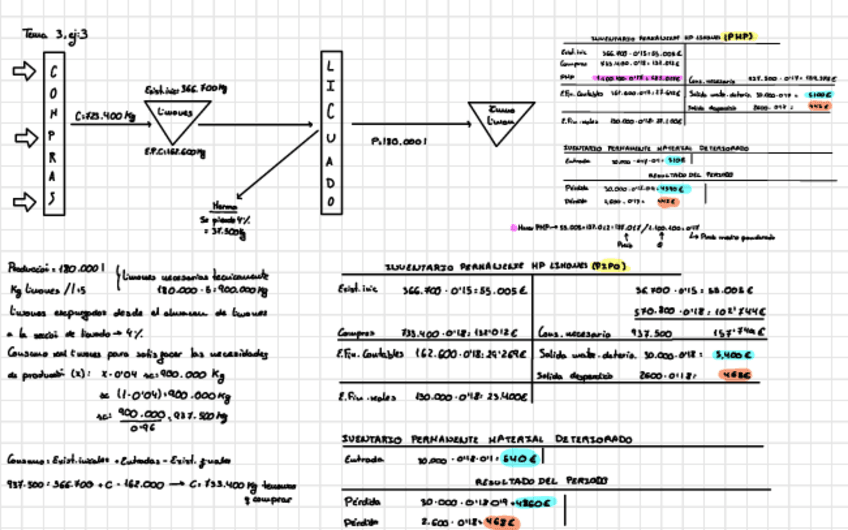 Tema 3, ej:3
COMPRAS
C:723.400 Kg
Exist.inic: 366.700 Kg
Limones
E.F.C:162.600 Kg
Merma
Se pierde 4%
= 37.500 Kg
LICUADO
P:180.000 l
Zumo
Limon
INVENTARIO PERMANENTE MP LIMONES (PMP)
Exist.inic 366.700 · 0'15 = 55.005€
Compras 733.400 · 0'18 = 132.012€
PMP
Cons. necesario
E.Fin. Contables
Salida mate. deterio. 30.000 · 0'17 = 5100€
Salida desperdicio 2600 · 0'17 = 442€
E.Fin. reales
INVENTARIO PERMANENTE MATERIAL DETERIORADO
Entrada
RESULTADO DEL PERIODO
Pérdida
Pérdida 442€
Precio medio ponderado
Producción = 180.000 l
Kg Limones / l : 5
Limones necesarios tecnicamente
180.000 · 5 = 900.000 Kg
Limones expurgados desde el almacen de limones
a la sección de licuado → 4%
Consumo real limones para satisfacer las necesidades
de producción (x): x · 0'04 x = 900.000 Kg
x (1-0'04) = 900.000 Kg
x = 900.000 / 0'96 = 937.500 Kg
Consumo = Exist.iniciales + Entradas - Exist. finales
937.500 = 366.700 + C - 162.000 → C = 733.400 Kg tenemos
q comprar
INVENTARIO PERMANENTE MP LIMONES (FIFO)
Exist. inic 366.700 · 0'15 = 55.005€ 36 700 · 0'15 = 55.005€
570.800 · 0'18 = 102'744€
Compras 733.400 · 0'18 = 132'012€ Cons. necesario 937.500 157'749€
E.Fin. Contables 162.600 · 0'18 = 29'268€ Salida mate. deterio. 30.000 · 0'18 = 5,400€
Salida desperdicio 2600 · 0'18 = 468€
E.Fin. reales 130.000 · 0'18 = 23.400€
INVENTARIO PERMANENTE MATERIAL DETERIORADO
Entrada 30.000 · 0'18 · 0'1 = 540€
RESULTADO DEL PERIODO
Pérdida 30.000 · 0'18 · 0'9 = 4860€
Pérdida 2.600 · 0'18 = 468€